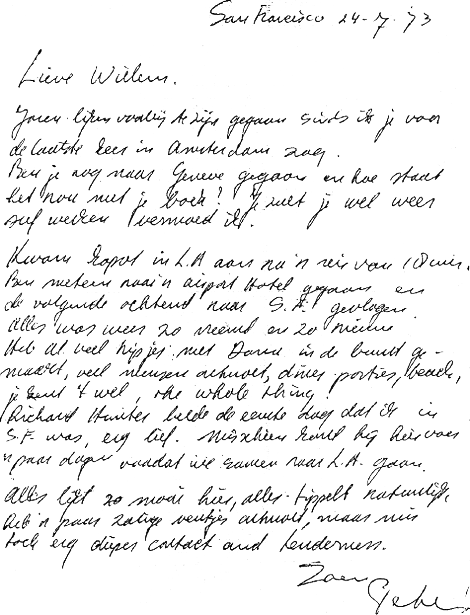 San Francisco 24-7-73
Lieve Willem.
Jaren lijken voorbij te zijn gegaan sinds ik je voor
de laatste keer in Amsterdam zag.
Ben je nog naar Geneve gegaan en hoe staat
het nou met je boek? Je zult je wel weer
suf werken vermoed ik.
Kwam kapot in L.A aan na 'n reis van 18 uur.
Ben meteen naar 'n airport Hotel gegaan en
de volgende ochtend naar S.F. gevlogen.
Alles was weer zo vreemd en zo nieuw
Heb al veel tripjes met in de buurt ge-
maakt, veel mensen ontmoet, diners parties, beach,
je kent 't wel, the whole thing!
Richard Hunter belde de eerste dag dat ik in
S.F. was, erg lief. Misschien komt hij hier voor
'n paar dagen voordat we samen naar L.A. gaan.
Alles lijkt zo mooi hier, alles tippelt natuurlijk,
heb 'n paar zalige ventjes ontmoet, maar mis
toch erg dieper contact and tenderness.